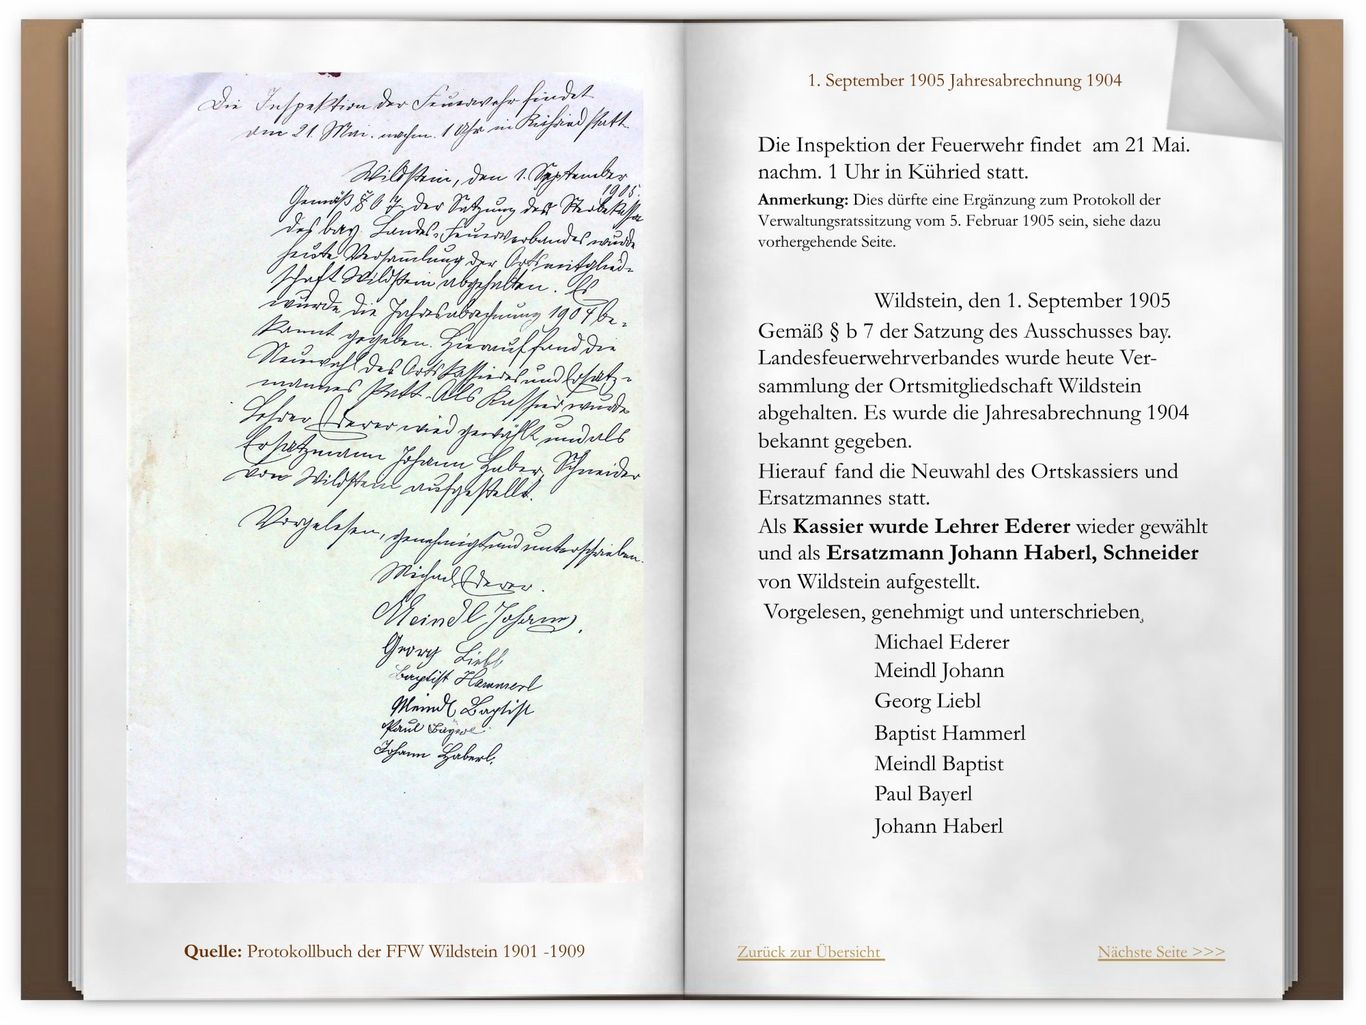 Die Inspektion der Feuerwehr findet
am 21 Mai. nachm. 1 Uhr in Kühried statt.
Wildstein, den 1. September
1905.
Gemäß § b 7 der Satzung des Sterbekasse
des bay. Landes-Feuerverbandes wurde
heute Versammlung der Ortsmitglied-
schaft Wildstein abgehalten. Es
wurde die Jahresabrechnung 1904 be-
kannt gegeben. Hierauf fand die
Neuwahl des Ortskassieres und Ersatz-
mannes statt. Als Kassier wurde
Lehrer Ederer wied gewählt und als
Ersatzmann Johann Haber, Schneider
von Wildstein aufgestellt.
Vorgelesen, genehmigt und unterschrieben.
Michael Ederer.
Meindl Johann,
Georg Liebl
Baptist Hammerl
Meindl Baptist
Paul Bayerl
Johann Haberl.
Quelle: Protokollbuch der FFW Wildstein 1901 -1909
1. September 1905 Jahresabrechnung 1904
Die Inspektion der Feuerwehr findet am 21 Mai.
nachm. 1 Uhr in Kühried statt.
Anmerkung: Dies dürfte eine Ergänzung zum Protokoll der
Verwaltungsratssitzung vom 5. Februar 1905 sein, siehe dazu
vorhergehende Seite.
Wildstein, den 1. September 1905
Gemäß § b 7 der Satzung des Ausschusses bay.
Landesfeuerwehrverbandes wurde heute Ver-
sammlung der Ortsmitgliedschaft Wildstein
abgehalten. Es wurde die Jahresabrechnung 1904
bekannt gegeben.
Hierauf fand die Neuwahl des Ortskassiers und
Ersatzmannes statt.
Als Kassier wurde Lehrer Ederer wieder gewählt
und als Ersatzmann Johann Haberl, Schneider
von Wildstein aufgestellt.
Vorgelesen, genehmigt und unterschrieben,
Michael Ederer
Meindl Johann
Georg Liebl
Baptist Hammerl
Meindl Baptist
Paul Bayerl
Johann Haberl
Zurück zur Übersicht
Nächste Seite >>>